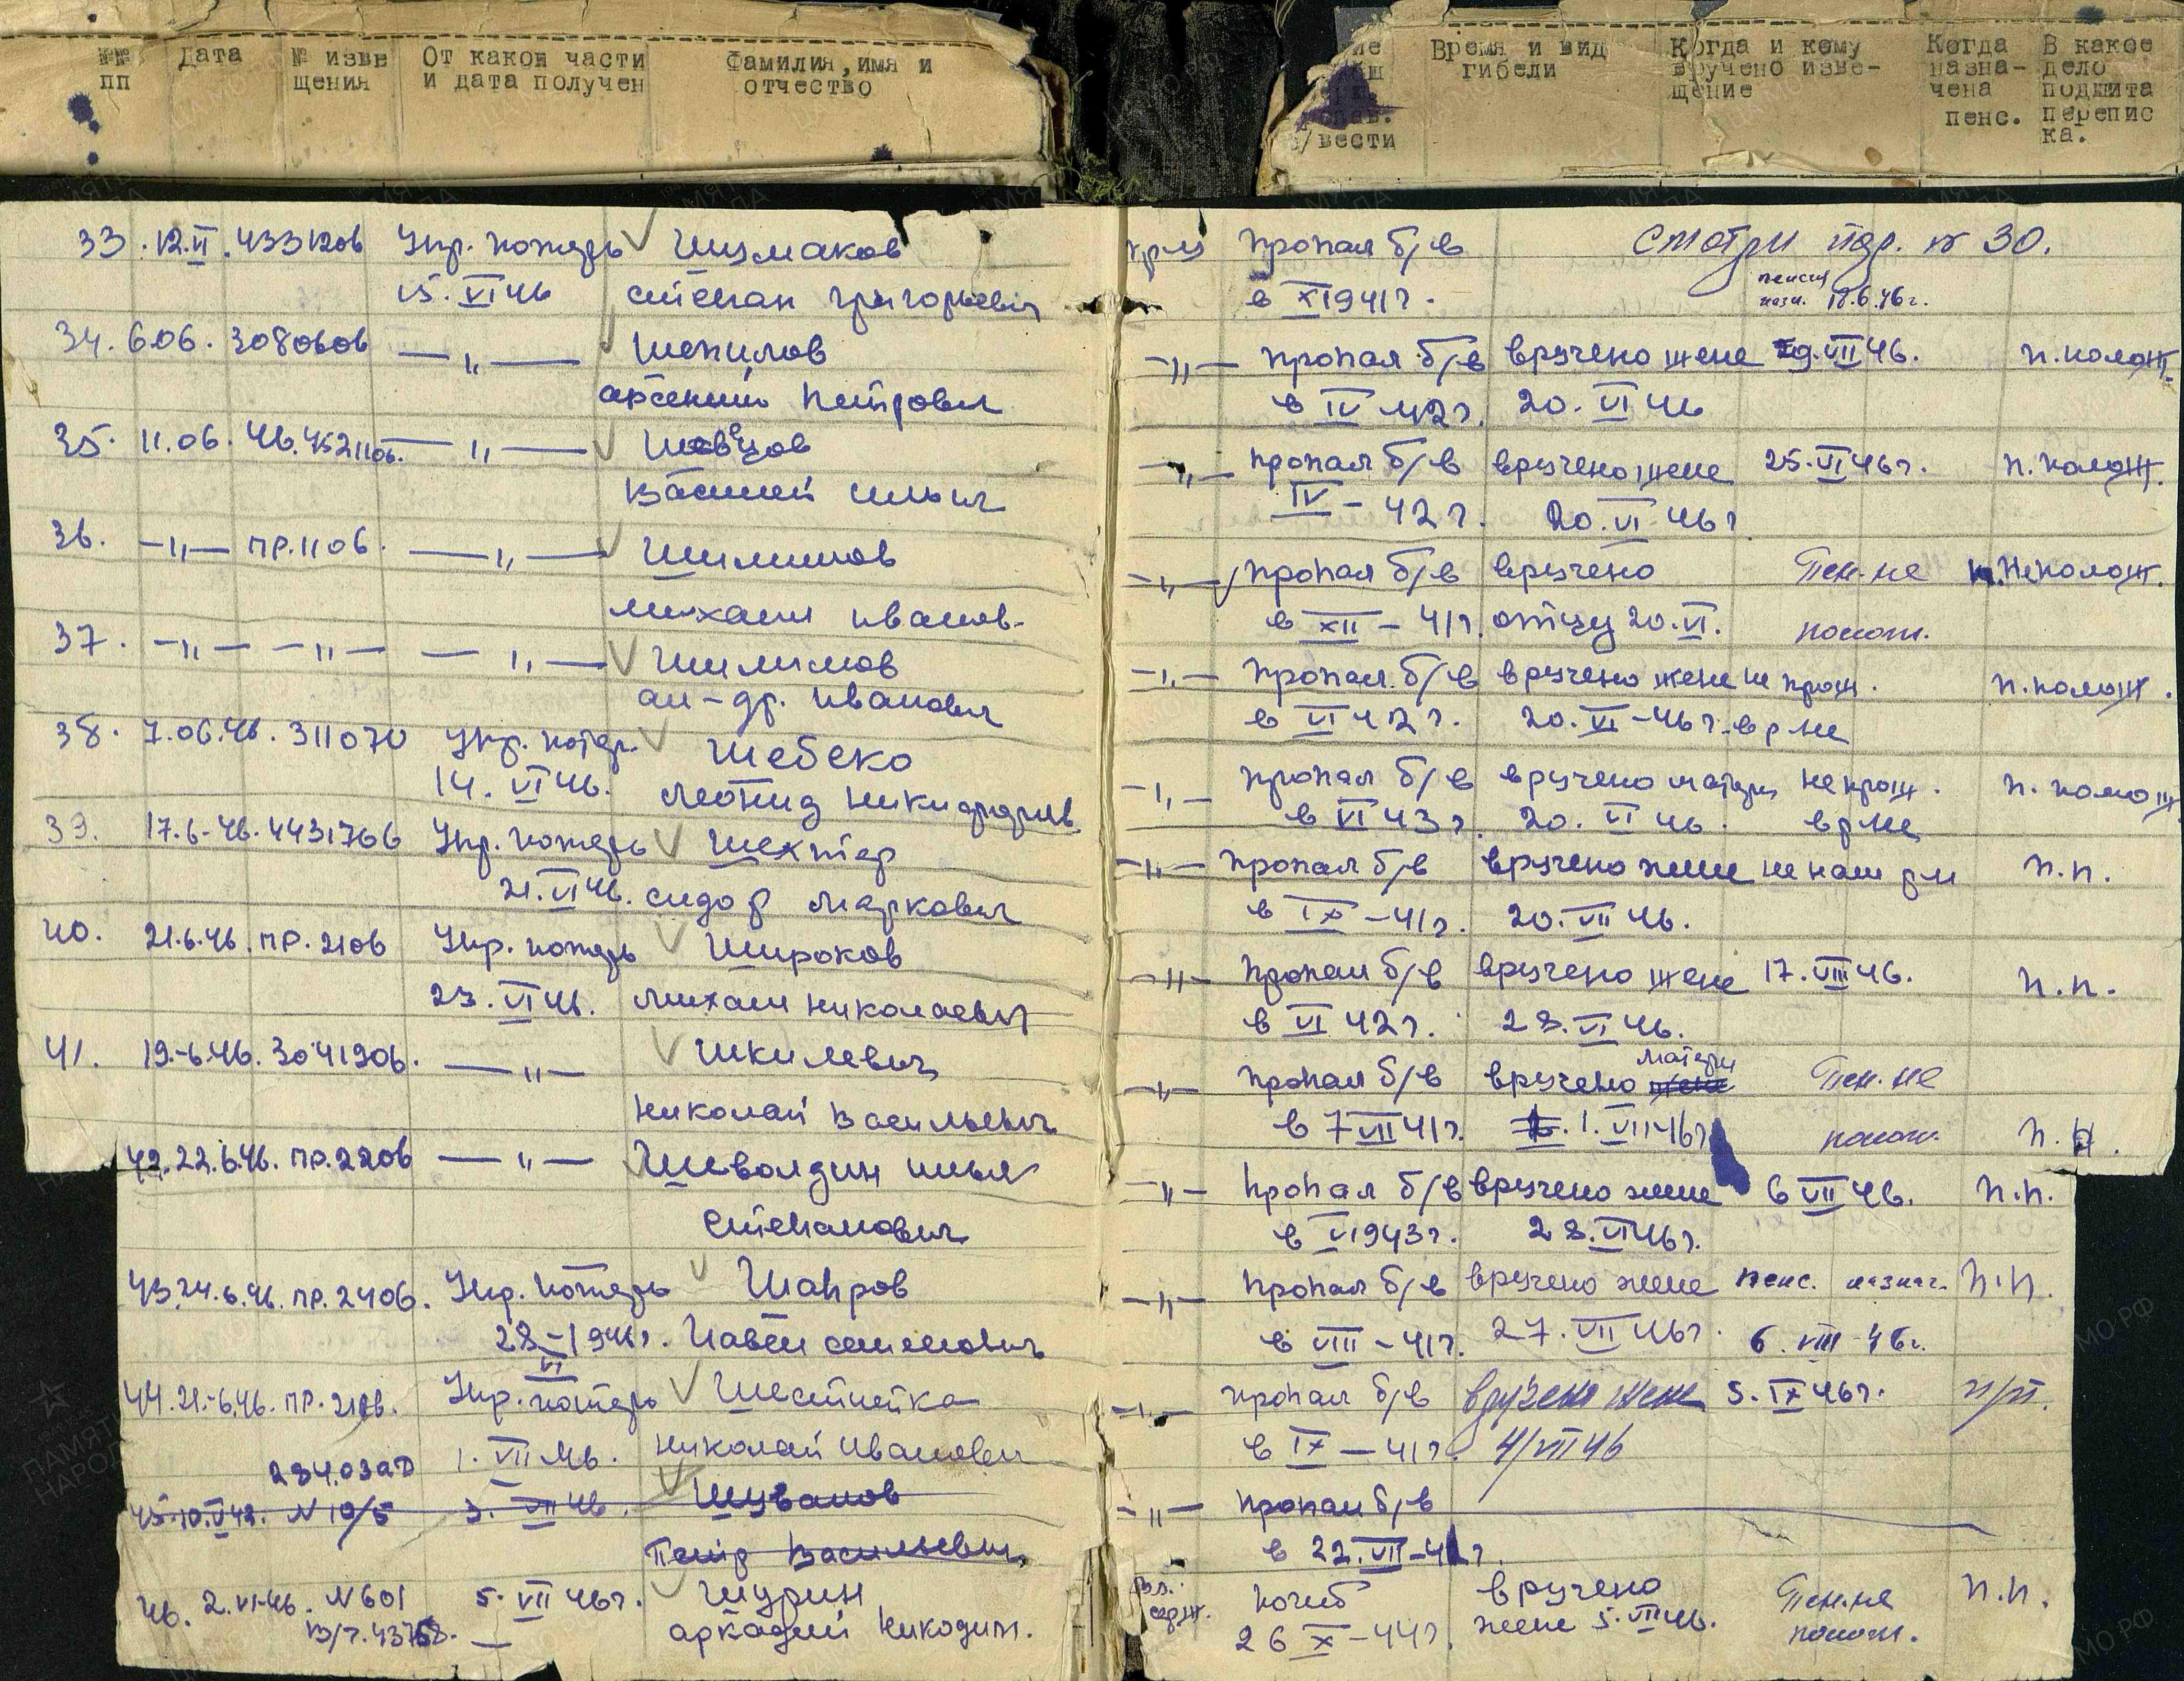 №№ пп Дата № изве щения От какой части и дата получен Фамилия, имя и отчество
Время и вид гибели Когда и кому вручено изве- щение Когда назна- чена пенс. В какое дело подшита перепис ка.
/вести
33. 12.VI. 4331206 Упр. потерь Шумаков пропал б/в Смотри пор. № 30.
15. VI 46 Степан Григорьевич в XI 941г. пенсия назн. 18.6.46г.
34. 6.06. 3080606 —„— Шепилов —„— пропал б/в вручено жене 29.VII 46. п. полож.
Арсений Петрович в IV 42г. 20. VI 46
35. 11.06. 46. 4521106. —„— Шевцов —„— пропал б/в вручено жене 25.VI 46г. п. полож.
Василий Ильич IV – 42г. 20.VI 46г
36. —„— ПР.1106. —„— Шилимов —„— пропал б/в вручено Пен. не неполож.
Михаил Иванов. в XII – 41г. отцу 20.VI. полож.
37. —„— —„— —„— Шилимов —„— пропал б/в вручено жене не прож. п. полож.
Ал-др. Иванович в VI 42г. 20. VI – 46г. в р-не
38. 7.06.46. 311070 Упр. потер. Шебеко —„— пропал б/в вручено матери не прож. п. полож
14. VI 46. Леонид в VI 43г. 20. VI 46. в р-не
39. 17.6.46. 4431706 Упр. потерь Шехтер —„— пропал б/в вручено жене не наш р-н п.п.
21.VI 46. Сидор Маркович в IX – 41г. 20. VII 46.
40. 21.6.46. ПР. 2106 Упр. потерь Широков —„— пропал б/в вручено жене 17.VIII 46. п.п.
23. VI 46. Михаил Николаевич в VI 42г. 28. VI 46.
41. 19.6.46. 3041906. —„— Шкилевич —„— пропал б/в вручено жене матери Пен. не
Николай Васильевич в 7 VII 41г. 1. VII 46г полож. п.
42. 22.6.46. ПР.2206 —„— Шеволдин Илья —„— пропал б/в вручено жене 6 VII 46. п.п.
Степанович в V 1943г. 28.VI 46г.
43. 24.6.46. ПР. 2406. Упр. потерь Шапров —„— пропал б/в вручено жене пенс. назнач. п.п.
28 – VI 1946г. Павел Семенович в VIII – 41г. 27. VII 46г. 6. VIII – 46г.
44. 21.6.46. ПР. Упр. потерь —„— пропал б/в вручена жене 5. IX 46г. п/п.
1. VII 46. Николай Иванович в IX – 41г. 4/VII 46
234.03АП
45. 10.V 42. N 19/5 3. VII 46. Шувалов —„— пропал б/в
Васильевич в 22.VII – г.
46. 2.VI-46. N 601 5. VII 46г. Шурин погиб вручено Пен. не п.п.
Аркадий Никодим. 26 X – 44г. жене 5.VII 46. полож.